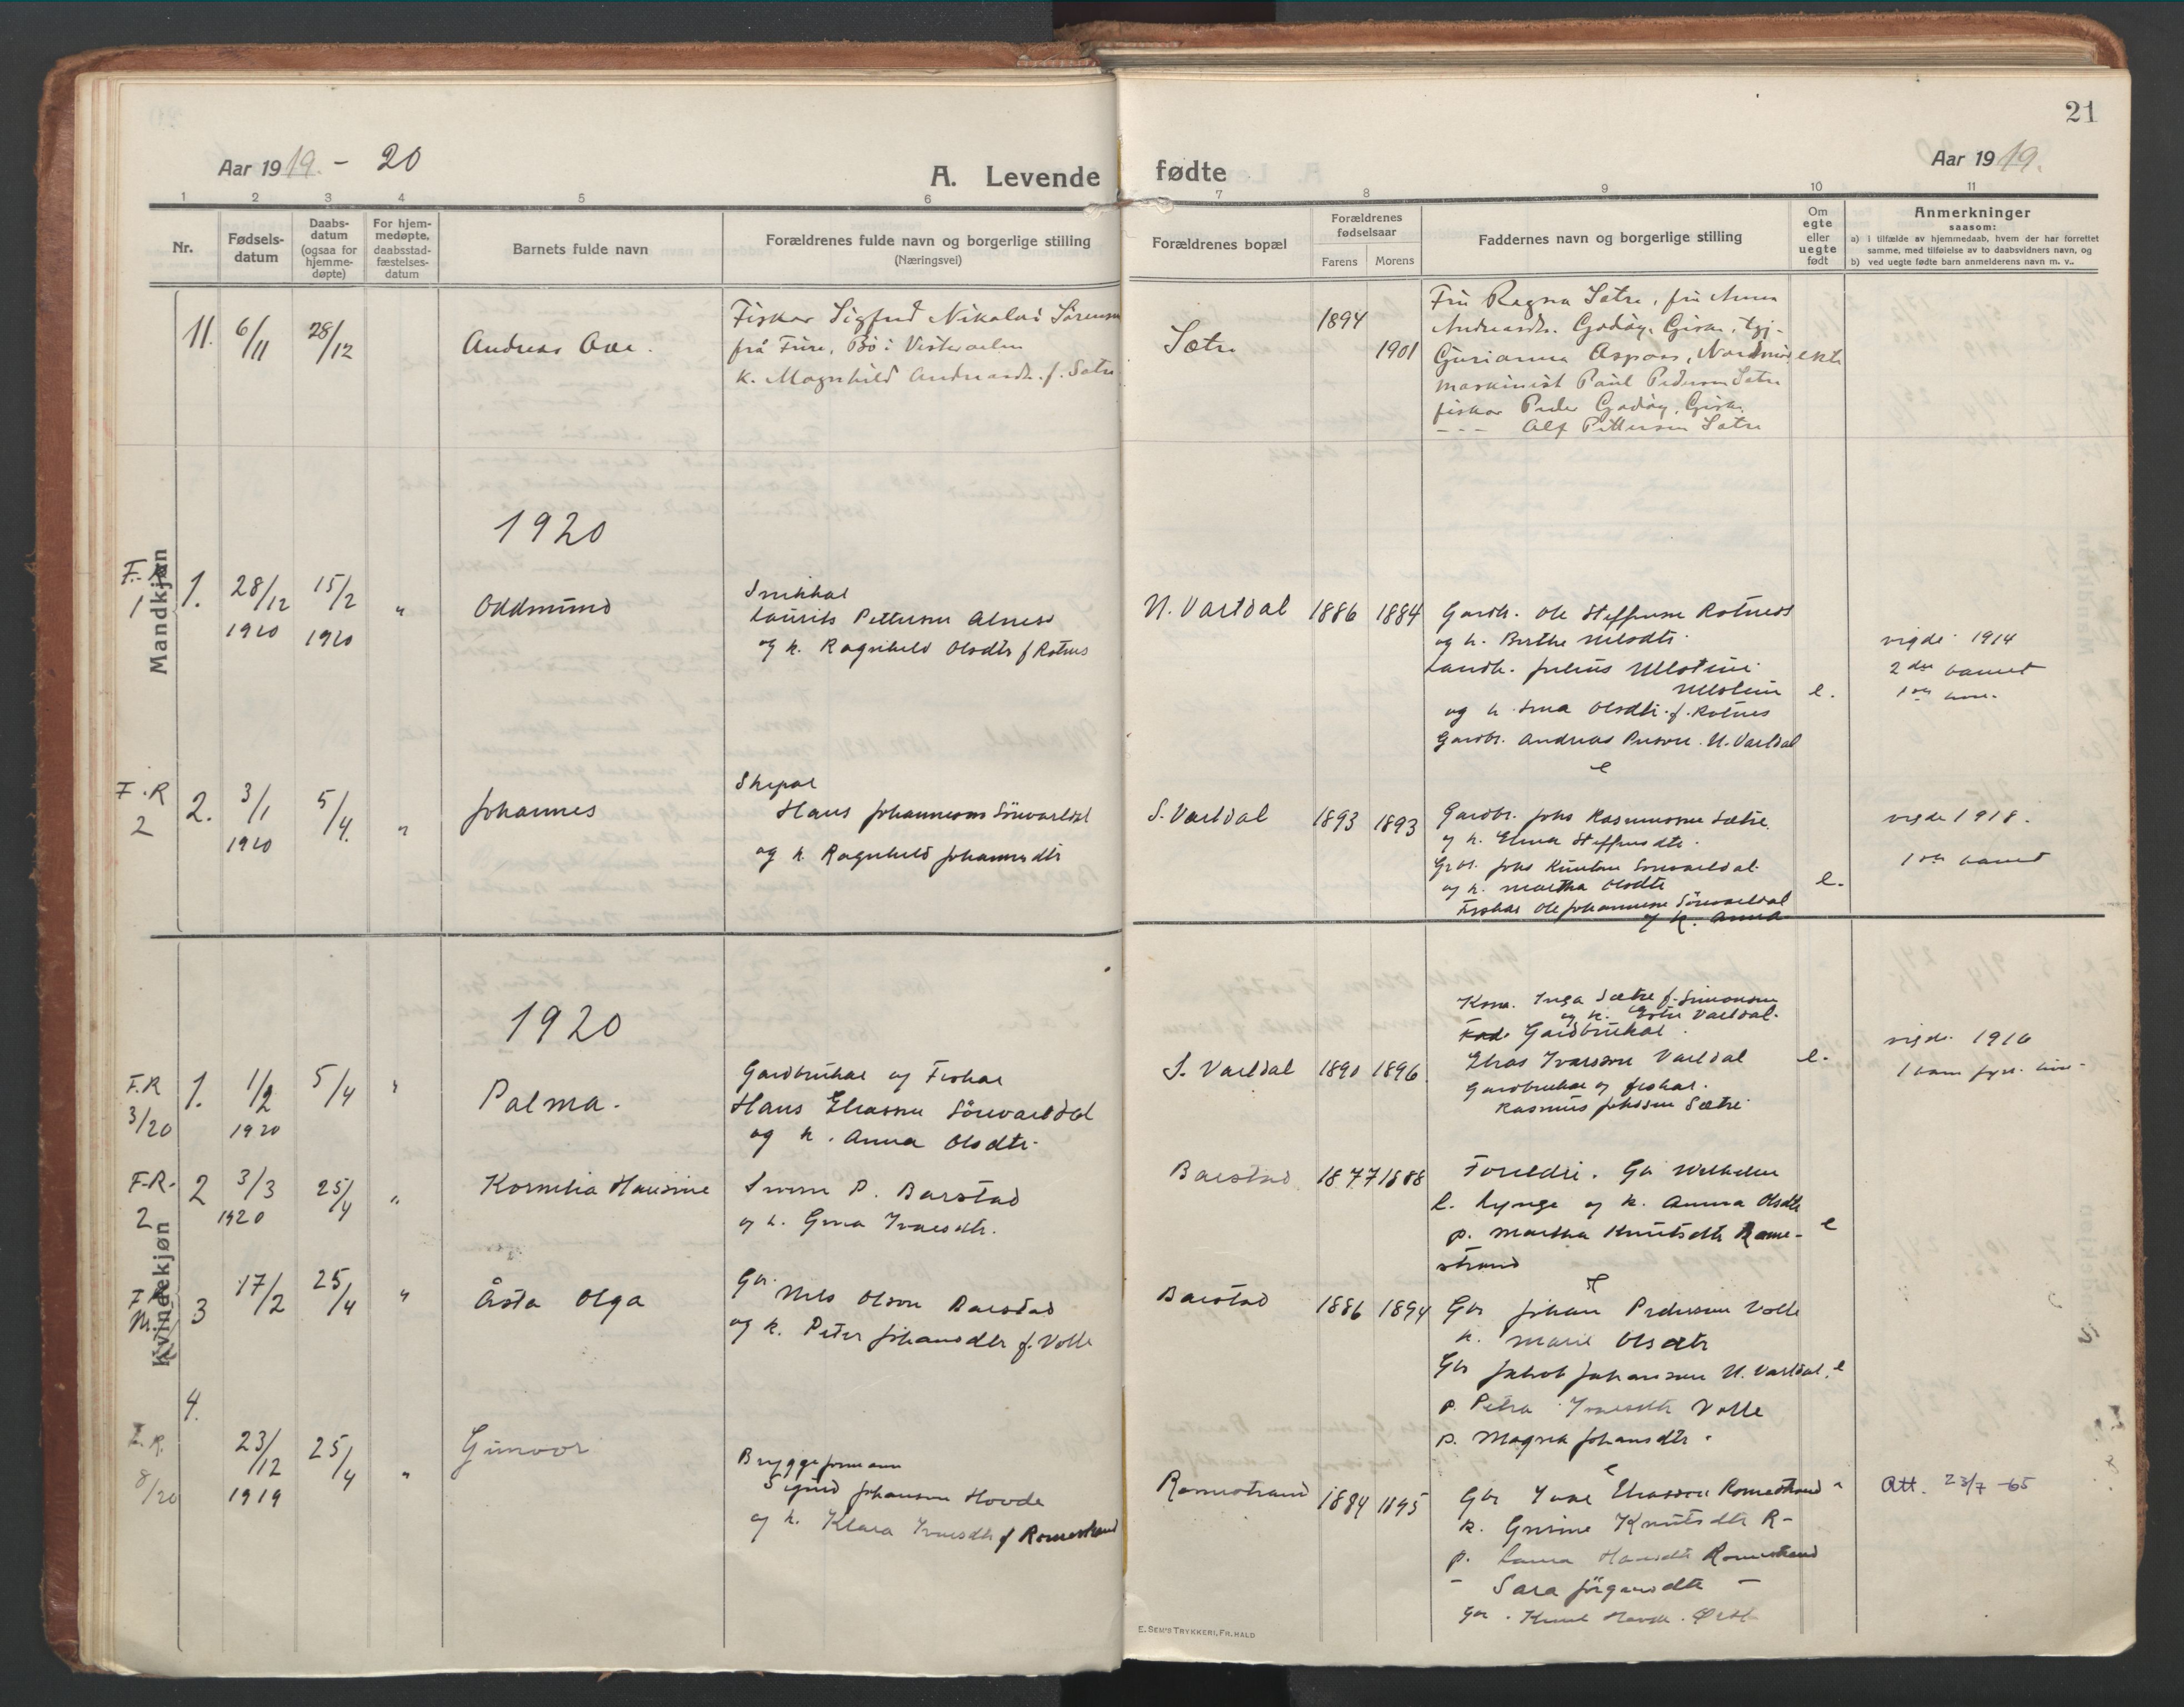 21
Aar 1919. - 20
A. Levende fødte
Aar 1919.
1 2 3 4 5 6 7 8 9 10 11
Nr.
Fødsels-
datum
Daabs-
datum
(ogsaa for
hjemme-
døpte)
For hjem-
medøpte,
daabsstad-
fæstelses-
datum
Barnets fulde navn
Forældrenes fulde navn og borgerlige stilling
(Næringsvei)
Forældrenes bopæl
Forældrenes
fødselsaar
Farens Morens
Faddernes navn og borgerlige stilling
Om
egte
eller
uegte
født
Anmerkninger
saasom:
a) I tilfælde av hjemmedaab, hvem der har forrettet
samme, med tilføielse av to daabsvidners navn, og
b) ved uegte fødte barn anmelderens navn m. v..
Mandkjøn
11. 6/11 28/12
Andreas
Fiskar Sigfred Nikolai Sörensen
frå Fure, Bö i Vesteraalen
k. Magnhild Andreasdt. f. Sætre
Sætre
1894
1901
Fru Ragna Sætre, fru Anna
Andreasdt. Godöy, Giske, tgj.
Gurianna Aspaas, Nordmör
ekte
maskinist Paul Pedersen Sætre
fiskar Peder Godöy, Giske.
- - - Alf Pettersen Sætre
1920
F.-R
1
1. 28/12 1920 15/2 1920 "
Oddmund
Snikkar
Laurits Petterson Alnes
og k. Ragnhild Olsdtr f Rotnes
N. Vartdal
1886 1884
Gardb. Ole Steffense Rotnes
og k. Berthe Nilsdtr.
Landh. Julius Ullstein
Ullstein
og k. Olsdtr. f. Rotnes
Gardbr. Andreas N. Vartdal
e.
vigde 1914
2 dre barnet
F.R
2
2. 3/1 1920 5/4. "
Johannes
Skipar
Hans Johannesson Sörevartdal
og k. Ragnhild Johannesdtr
S. Vartdal
1893 1893
Gardbr. Johs Rasmussen Sætre.
og k. Elina Steffensdtr.
Gbr. Johs Knutsen Sörevartdal
og k. Martha Olsdtr
Fiskar Ole Johannesen Sörevartdal
og k. Anna
e.
vigde 1918.
1ste barnet
Kvindekjøn
1920
F.R
3/20
1. 1/2 1920 5/4 "
Palma.
Gardbrukar og Fiskar
Hans Eliassen Sörevartdal
og k. Anna Olsdtr.
S. Vartdal
1890 1896
Kona Inga Sætre f. Simonsen
Gardbrukar
Elias Ivarsson Vartdal
gardbrukar og fiskar.
Rasmus Johssen Sætre
e.
vigde 1916
F-R-
2
2 3/3 1920 25/4 "
Kornelia Hansine
P. Barstad
og k. Gina Ivarsdtr.
Barstad
1877 1888
Foreldri. Gbr Wilhelm
L. Lynge og k. Anna Olsdtr
p. Martha Knutsdtr Rome-
strand
e
3 17/2 25/4 "
Åsta Olga
Gbr. Nils Olson Barstad
og k. Peter Johansdtr f. Volle
Barstad
1886 1894
Gbr Johan Pedersen Volle
k. Marie Olsdtr
Gbr Jakob Johansen N. Vartdal.
e
p. Petra Ivarsdtr Volle
p. Magna Johansdtr
F.R.
8/20
4. 23/12 1919 25/4 "
Gunvor
Bryggeformann
Sigurd Johansen Hovde
og k. Klara Ivarsdtr f Romestrand
Romestrand
1884 1895
Gbr Ivar Eliassen Romestrand
k. Gurine Knutsdtr R-
p. Laura Hansdtr Romestrand
- Sara Jörgensdtr -
Gbr. Knut
Att. 23/7 -65
E. SEM'S TRYKKERI, FR. HALD